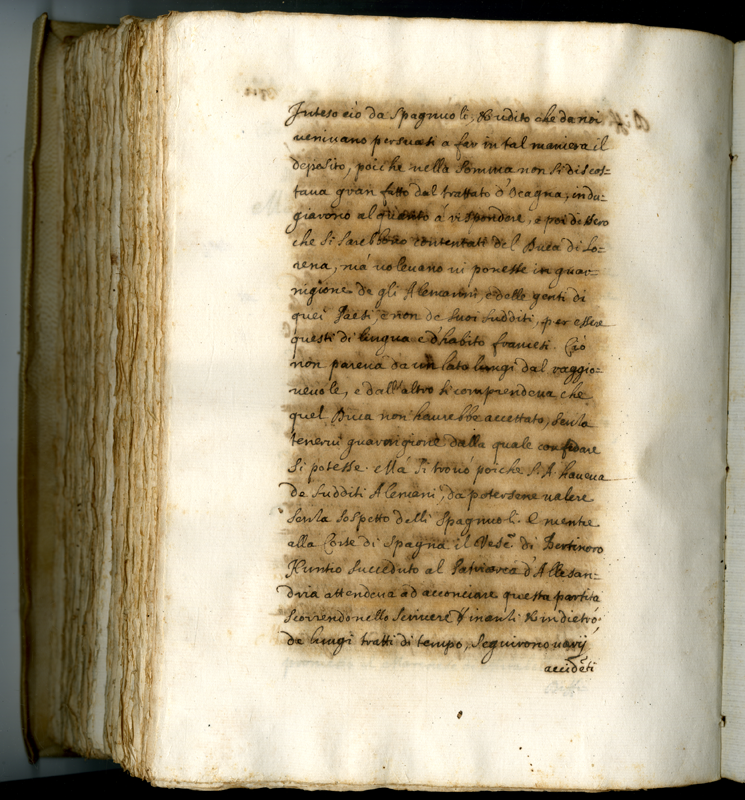 Inteso ciò da Spagnuoli, & udito che da noi
venivano persuasi a far in tal maniera il
deposito, poiche nella somma non si discos=
tava gran fatto dal trattato d'Ocagna, indu=
giarono alquanto á rispondere, e poi dissero
che si sarebbono contentati del Duca di Lo=
rena, má volevano vi ponesse in guar=
nigione de gli Alemanni, e delle genti di
quei Paesi, e non de suoi sudditi, per essere
questi di lingua e d'habito francesi. Ciò
non pareva da un lato lungi dal raggio=
nevole, e dall'altro si comprendeva che
quel Duca non haurebbe accettato, senza
tenervi guarnigione dalla quale confidare
si potesse. Má si trovò poiche S. A. haveva
de sudditi Alemani, da potersene valere
senza sospetto delli Spagnuoli. E mentre
alla Corte di Spagna il Vesc.º di Bertinoro
Nuntio succeduto al Patriarca d'Allesan=
dria attendeva ad acconciare questa partita
scorrendo nello scrivere d'inanzi & indietro
de lungi tratti di tempo, seguirono varij
accidẽti